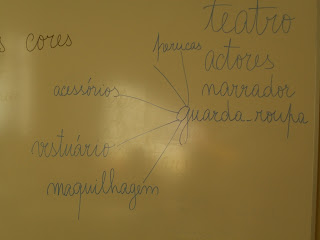 teatro
s cores
perucas
actores
acessórios
narrador
guarda-roupa
vestuário
maquilhagem